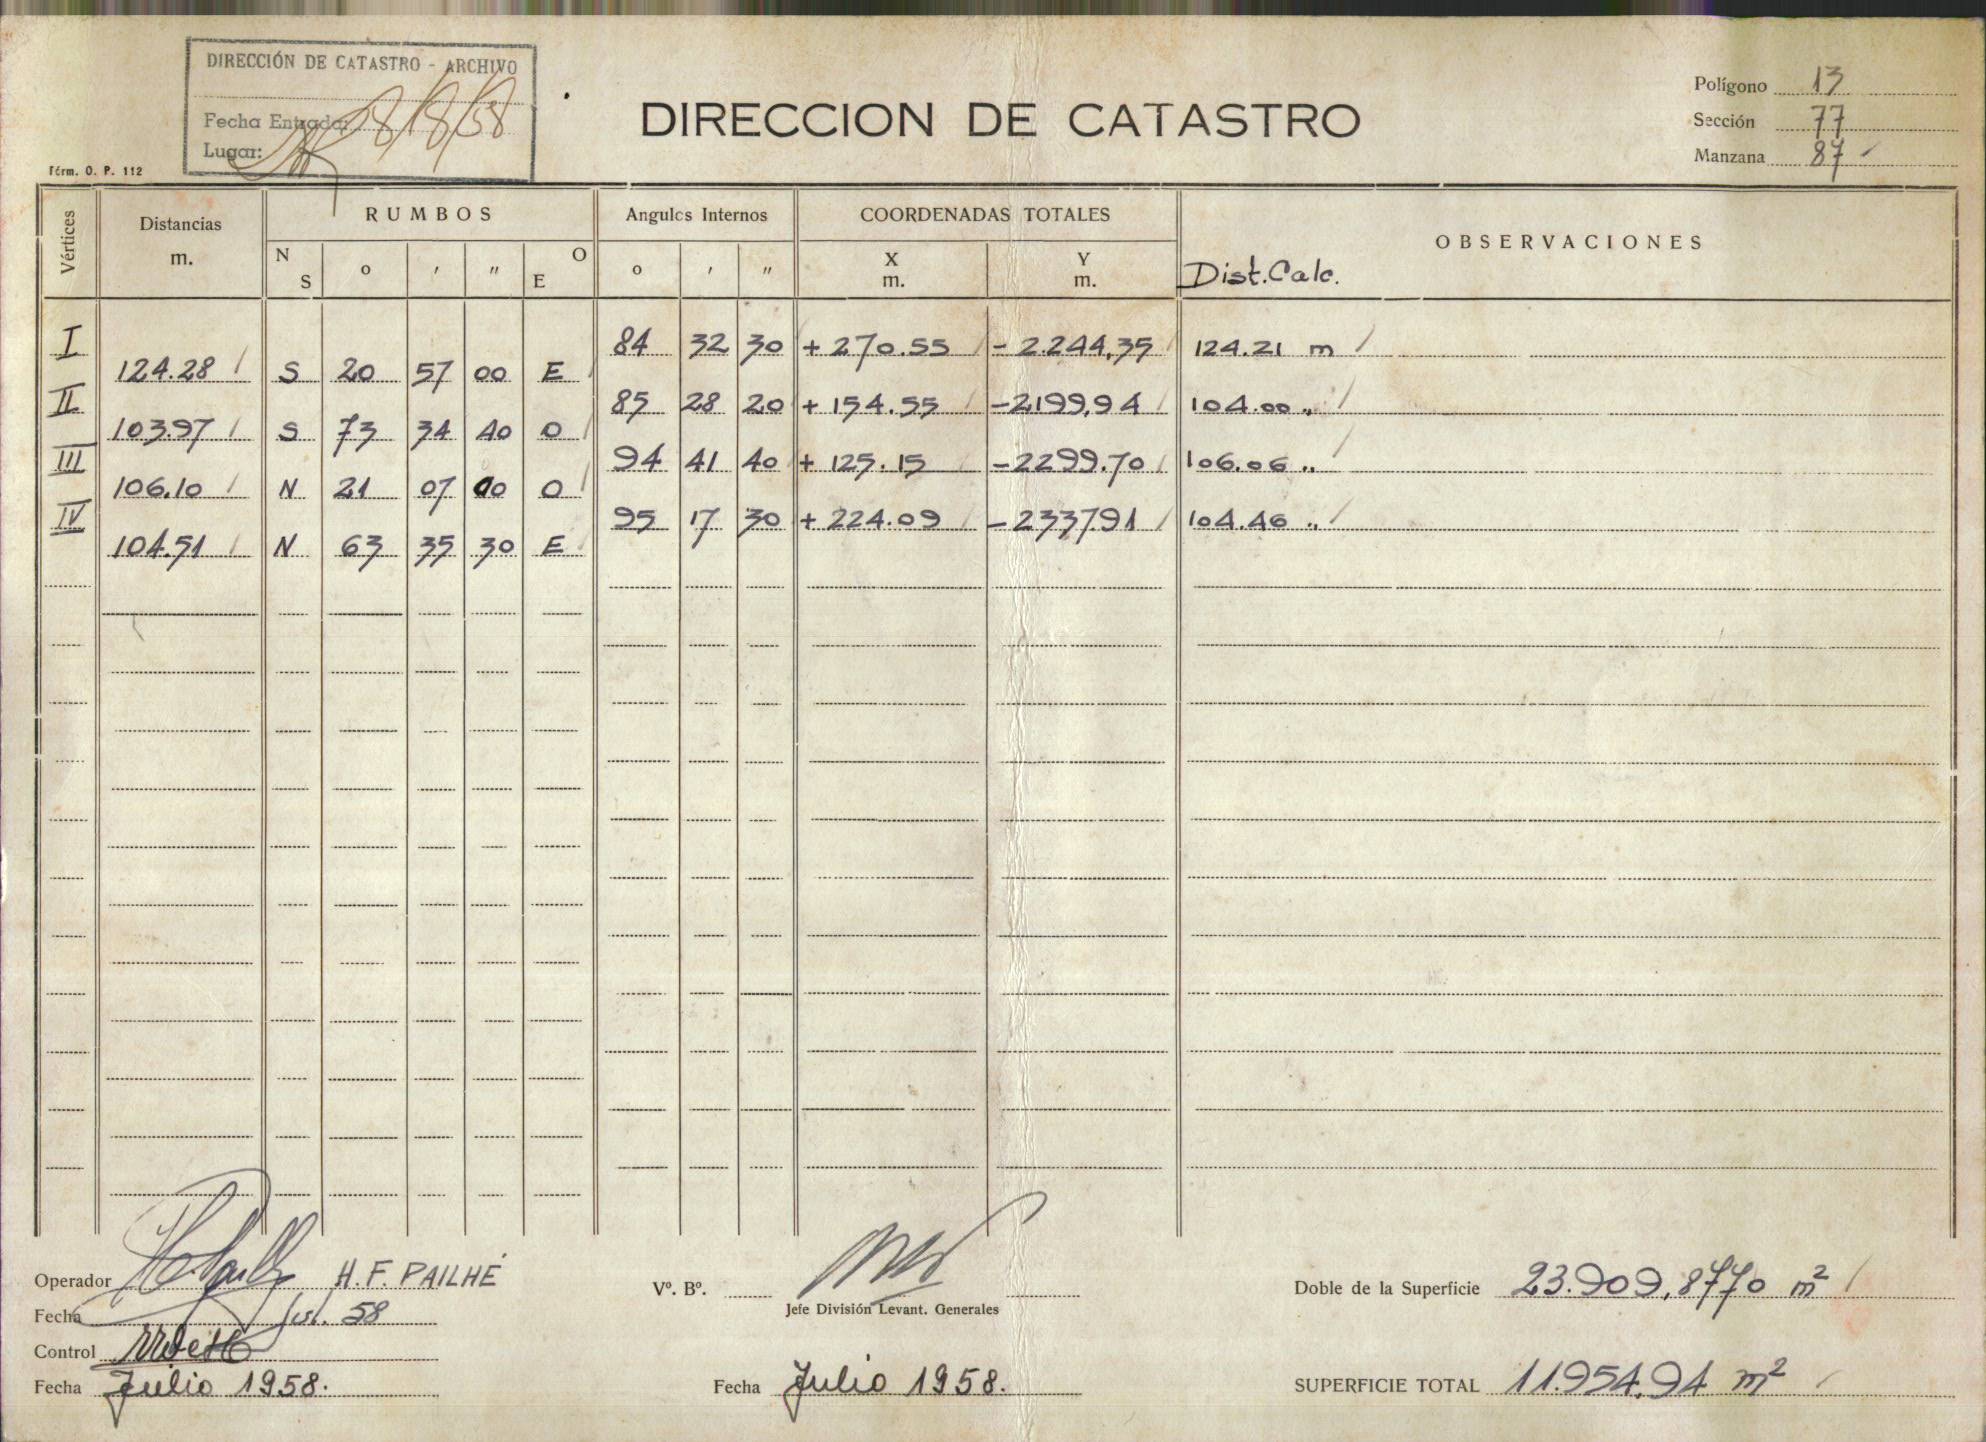 DIRECCIÓN DE CATASTRO - ARCHIVO
Fecha Entrada: 28/8/58
Lugar:
DIRECCION DE CATASTRO
Polígono 13
Sección 77
Manzana 87
Fórm. O. P. 112
Vértices
Distancias
m.
RUMBOS
N S o ′ ″ O E
Angulos Internos
o ′ ″
COORDENADAS TOTALES
X m. Y m.
OBSERVACIONES
Dist. Calc.
I 84 32 30 + 270.55 - 2.244,35 124.21 m
124.28 S 20 57 00 E
II 85 28 20 + 154.55 - 2199,94 104.00 "
103.97 S 73 34 40 O
III 94 41 40 + 125.15 - 2299.70 106.06 "
106.10 N 21 07 00 O
IV 95 17 30 + 224.09 - 2337.91 104.46 "
104.51 N 63 35 30 E
Operador H. F. PAILHÉ
Fecha Jul. 58
Control
Fecha Julio 1958.
Vº. Bº.
Jefe División Levant. Generales
Fecha Julio 1958.
Doble de la Superficie 23.909,8770 m²
SUPERFICIE TOTAL 11.954.94 m²